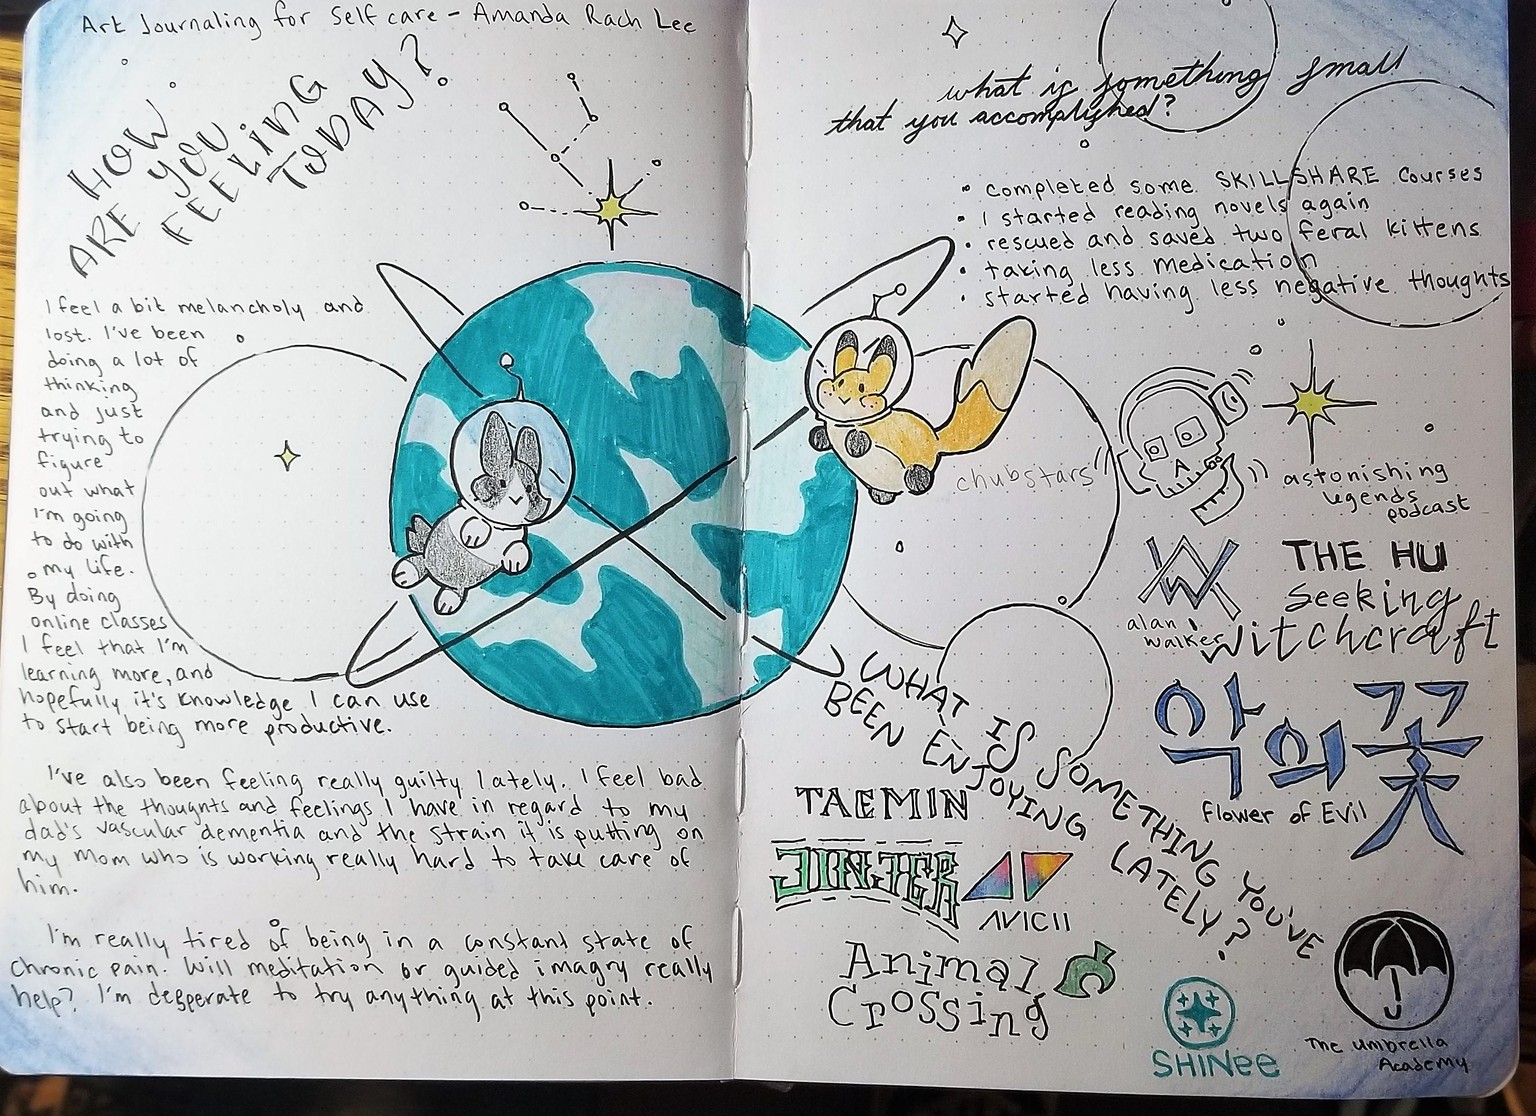 Art Journaling for Self care - Amanda Rach Lee
HOW
ARE YOU
FEELING
TODAY?
I feel a bit melancholy and
lost. I've been
doing a lot of
thinking
and just
trying to
figure
out what
I'm going
to do with
my life.
By doing
online classes
I feel that I'm
learning more, and
hopefully it's knowledge I can use
to start being more productive.
I've also been feeling really guilty lately. I feel bad
about the thoughts and feelings I have in regard to my
dad's vascular dementia and the strain it is putting on
my Mom who is working really hard to take care of
him.
I'm really tired of being in a constant state of
chronic pain. Will meditation or guided imagry really
help? I'm desperate to try anything at this point.
what is something small
that you accomplished?
• completed some SKILLSHARE courses
• I started reading novels again
• rescued and saved two feral kittens
• taking less medication
• started having less negative thoughts
chubstars
astonishing
legends
podcast
alan
walker
THE HU
Seeking
Witchcraft
악의 꽃
Flower of Evil
WHAT IS SOMETHING YOU'VE
BEEN ENJOYING LATELY?
TAEMIN
JINJER
AVICII
Animal
Crossing
SHINee
The Umbrella
Academy